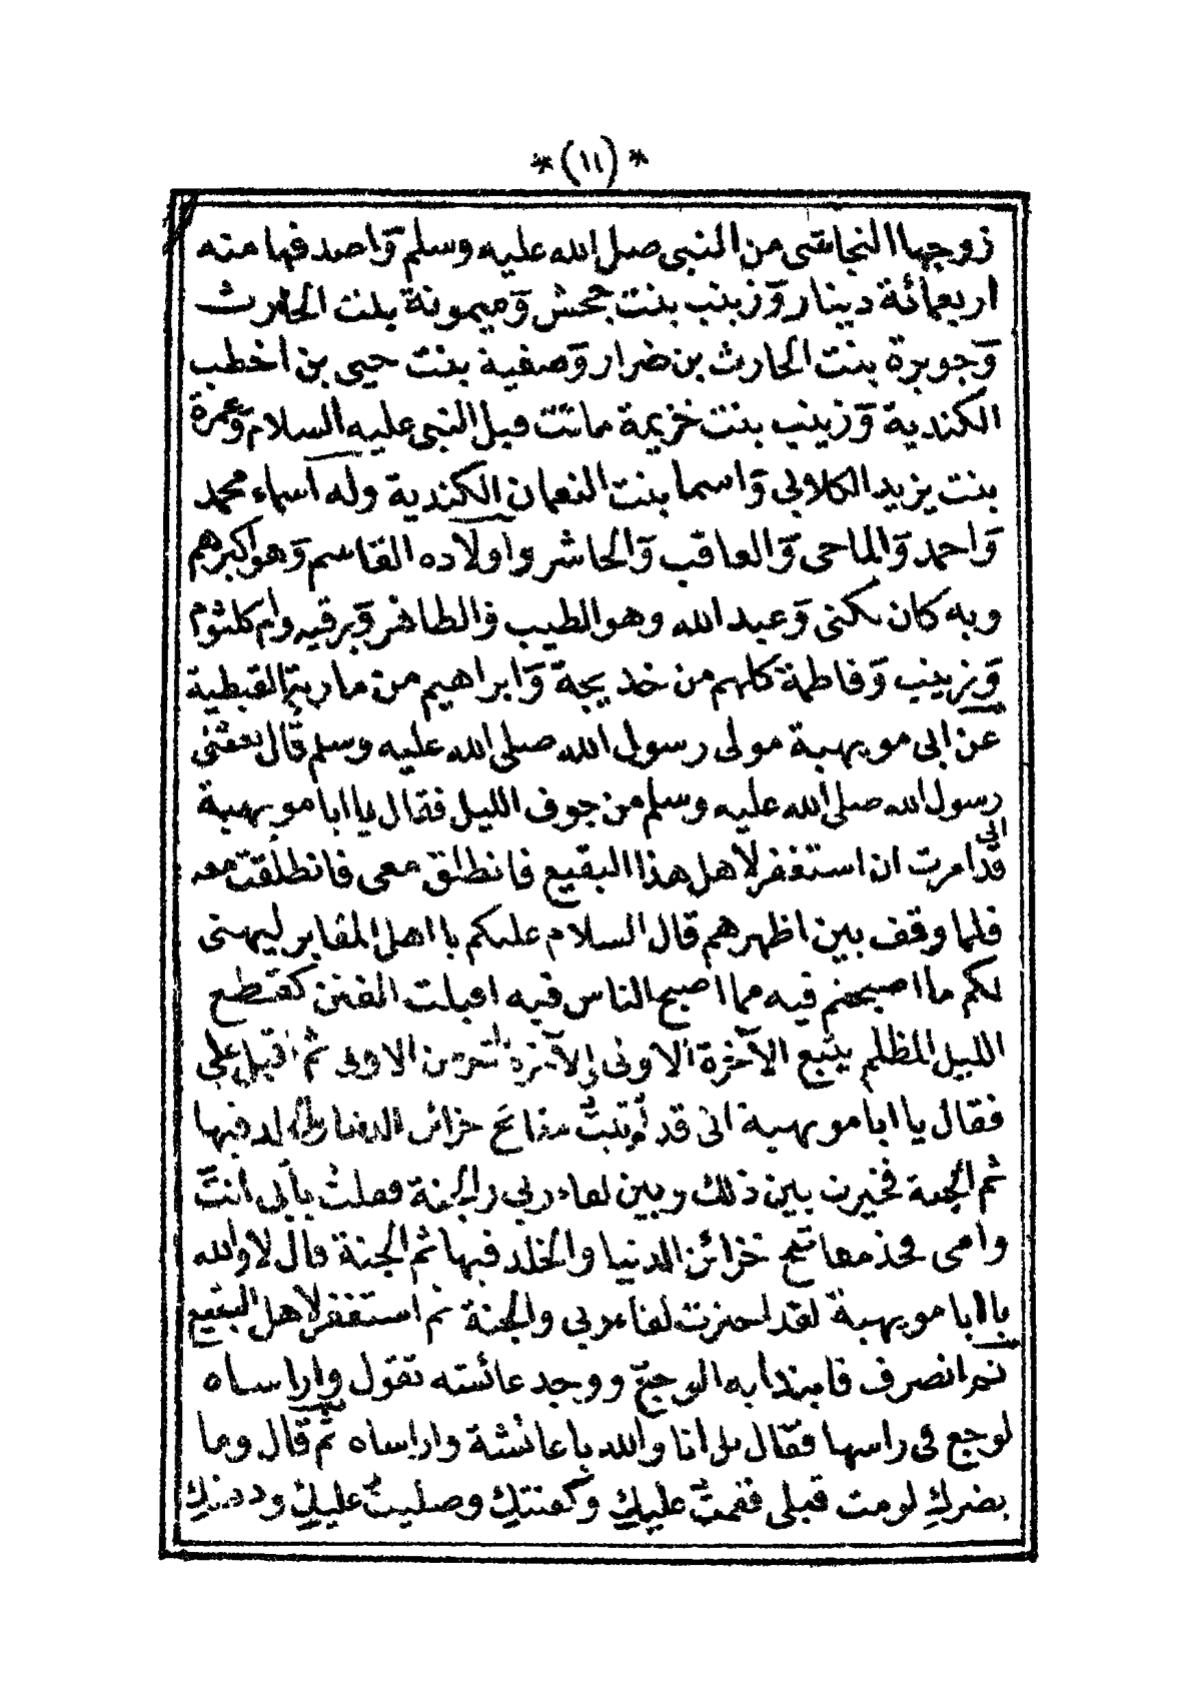 *(١١)*
زوجها النجاشى من النبى صلى الله عليه وسلم وَاصدقها منه
اربعمائة دينار وَزينب بنت جحش وَميمونة بنت الحارث
وَجويرة بنت الحارث بن ضرار وَصفية بنت حيى بن اخطب
الكندية وَزينب بنت خزيمة ماتت قبل النبى عليه السلام وَعمرة
بنت يزيد الكلابى وَاسما بنت النعمان الكندية وله اسماء محمد
وَاحمد وَالماحى وَالعاقب وَالحاشر واولاده القاسم وَهو اكبرهم
وبه كان يكنى وَعبد الله وهو الطيب وَالطاهر وَرقيه وام كلثوم
وَزينب وَفاطمة كلهم من خديجة وَابراهيم من مارية القبطية
عن ابى مويهبة مولى رسول الله صلى الله عليه وسلم قال بعثنى
رسول الله صلى الله عليه وسلم من جوف الليل فقال يا ابا مويهبة
انى
قد امرت ان استغفر لاهل هذا البقيع فانطلق معى فانطلقت معه
فلما وقف بين اظهرهم قال السلام عليكم يا اهل المقابر ليهنى
لكم ما اصبحتم فيه مما اصبح الناس فيه اقبلت الفتن كقطع
الليل المظلم يتبع الآخرة الاولى الآخرة اشر من الاولى ثم اقبل على
فقال يا ابا مويهبة انى قد اوتيت مفاتح خزائن الدنيا والخلد فيها
ثم الجنة فخيرت بين ذلك وبين لقاء ربى والجنة فقلت بابى انت
وامى فخذ مفاتح خزائن الدنيا والخلد فيها ثم الجنة قال لا والله
يا ابا مويهبة لقد اخترت لقاء ربى والجنة ثم استغفر لاهل البقيع
ثم انصرف فابتدا به الوجع ووجد عائشه تقول واراساه
لوجع فى راسها فقال بل انا والله يا عائشة واراساه ثم قال وما
يضركِ لو مت قبلى فقمت عليكِ وكفنتكِ وصليت عليكِ ودفنتكِ